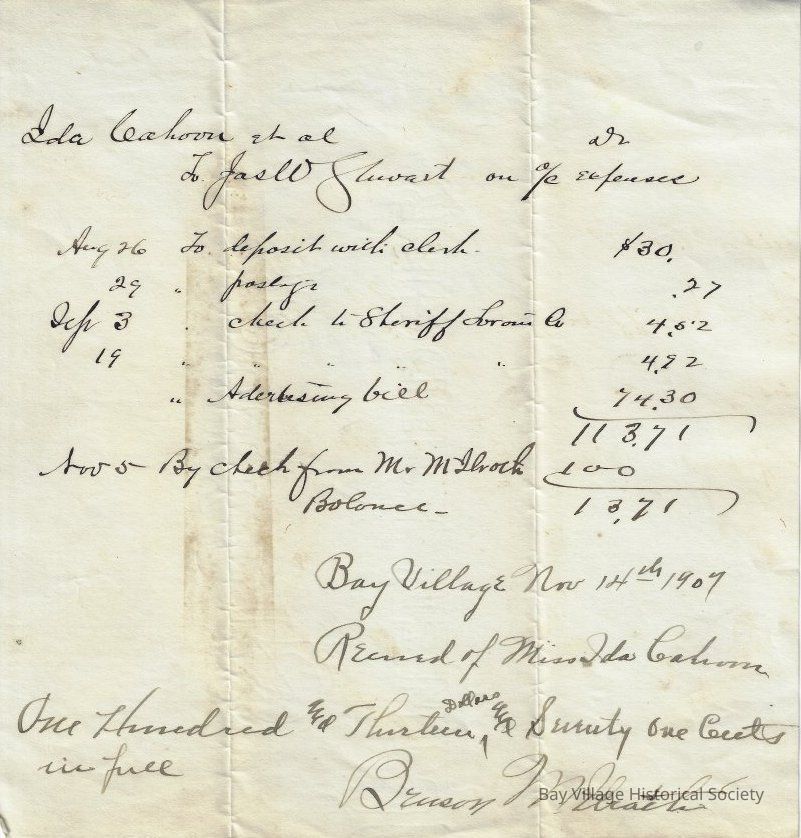 Ida Cahoon et al Dr
To Jas W Stewart on a/c expenses
Aug 26 To deposit with clerk $30.
29 " postage .27
Sep 3 " check to Sheriff Lorain Co 4.52
19 " " " " " 4.92
" Adertising bill 74.30
113.71
Nov 5 By check from Mr McIlrath 100
Balance - 13.71
Bay Village Nov 14th 1907
Received of Miss Ida Cahoon
One Hundred & Thirteen Dollars & Seventy One Cents
in full
Benson McIlrath
Bay Village Historical Society